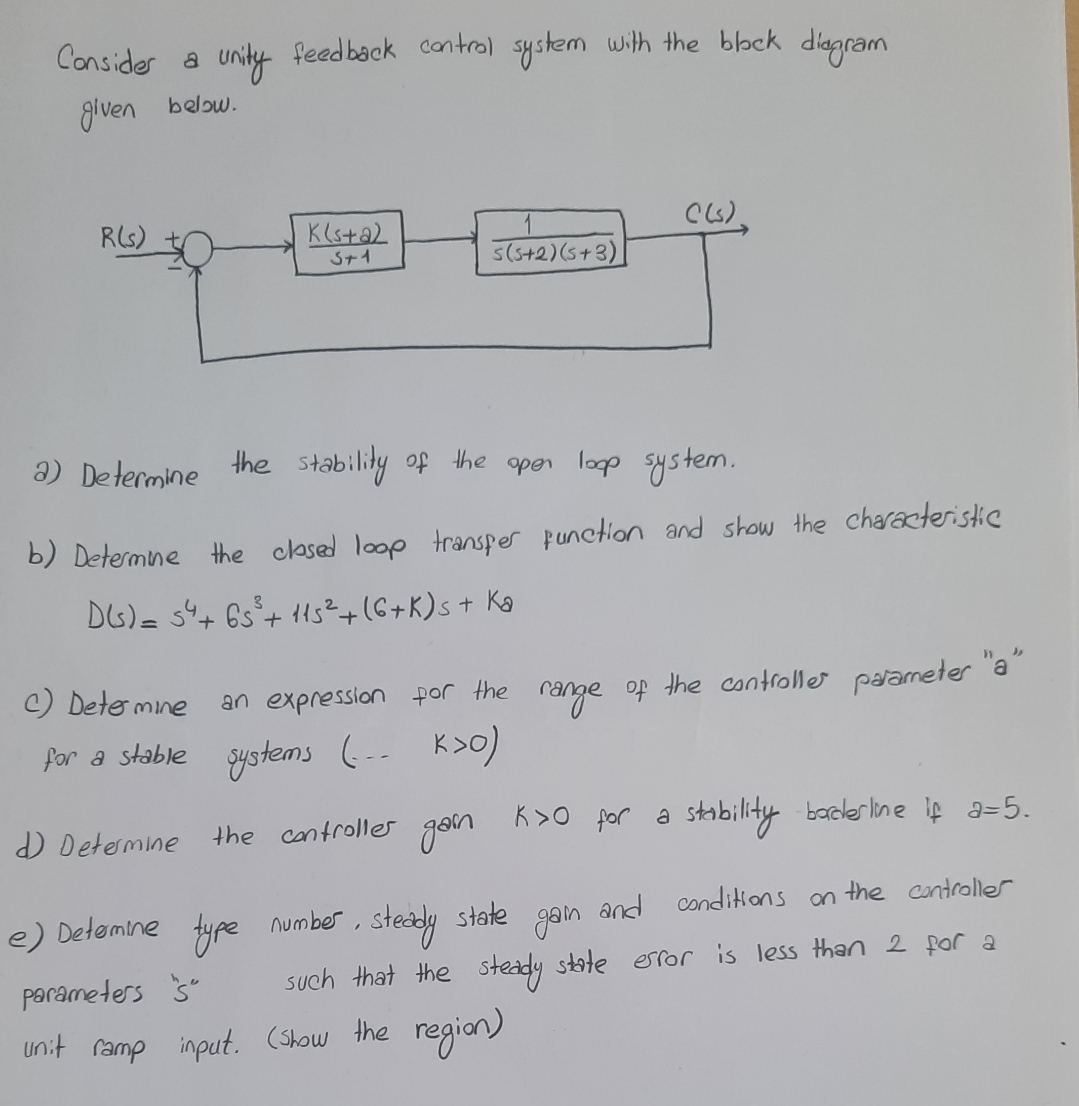 Consider a unity feedback control system with the block diagram
given below.
R(s) + K(s+a) 1 C(s)
- s+1 s(s+2)(s+3)
a) Determine the stability of the open loop system.
b) Determine the closed loop transfer function and show the characteristic
D(s) = s⁴ + 6s³ + 11s² + (6+K)s + Ka
c) Determine an expression for the range of the controller parameter "a"
for a stable systems (... K>0)
d) Determine the controller gain K>0 for a stability borderline if a=5.
e) Detemine type number, steady state gain and conditions on the controller
parameters "s" such that the steady state error is less than 2 for a
unit ramp input. (Show the region)